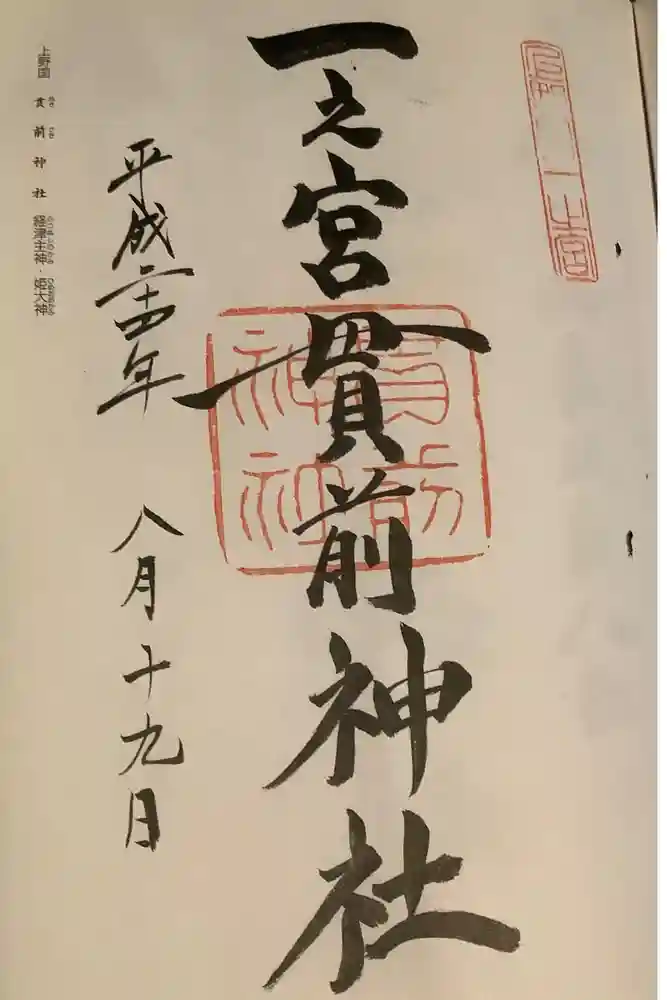 一之宮貫前神社
貫前神社
平成二十四年 八月十九日
上野国 貫前神社 経津主神・姫大神